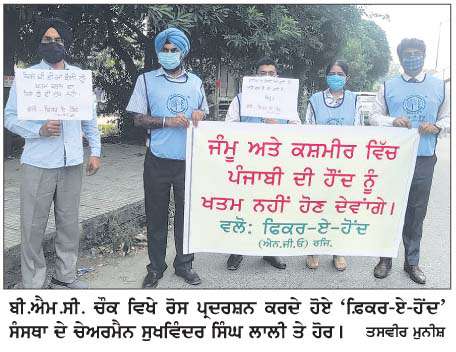 ਜੰਮੂ ਅਤੇ ਕਸ਼ਮੀਰ ਵਿੱਚ
ਪੰਜਾਬੀ ਦੀ ਹੌਂਦ ਨੂੰ
ਖਤਮ ਨਹੀਂ ਹੋਣ ਦੇਵਾਂਗੇ।
ਵਲੋ: ਫਿਕਰ-ਏ-ਹੋਂਦ
(ਐਨ.ਜੀ.ਓ) ਰਜਿ.
ਬੀ.ਐਮ.ਸੀ. ਚੌਕ ਵਿਖੇ ਰੋਸ ਪ੍ਰਦਰਸ਼ਨ ਕਰਦੇ ਹੋਏ ‘ਫ਼ਿਕਰ-ਏ-ਹੋਂਦ’
ਸੰਸਥਾ ਦੇ ਚੇਅਰਮੈਨ ਸੁਖਵਿੰਦਰ ਸਿੰਘ ਲਾਲੀ ਤੇ ਹੋਰ। ਤਸਵੀਰ ਮੁਨੀਸ਼